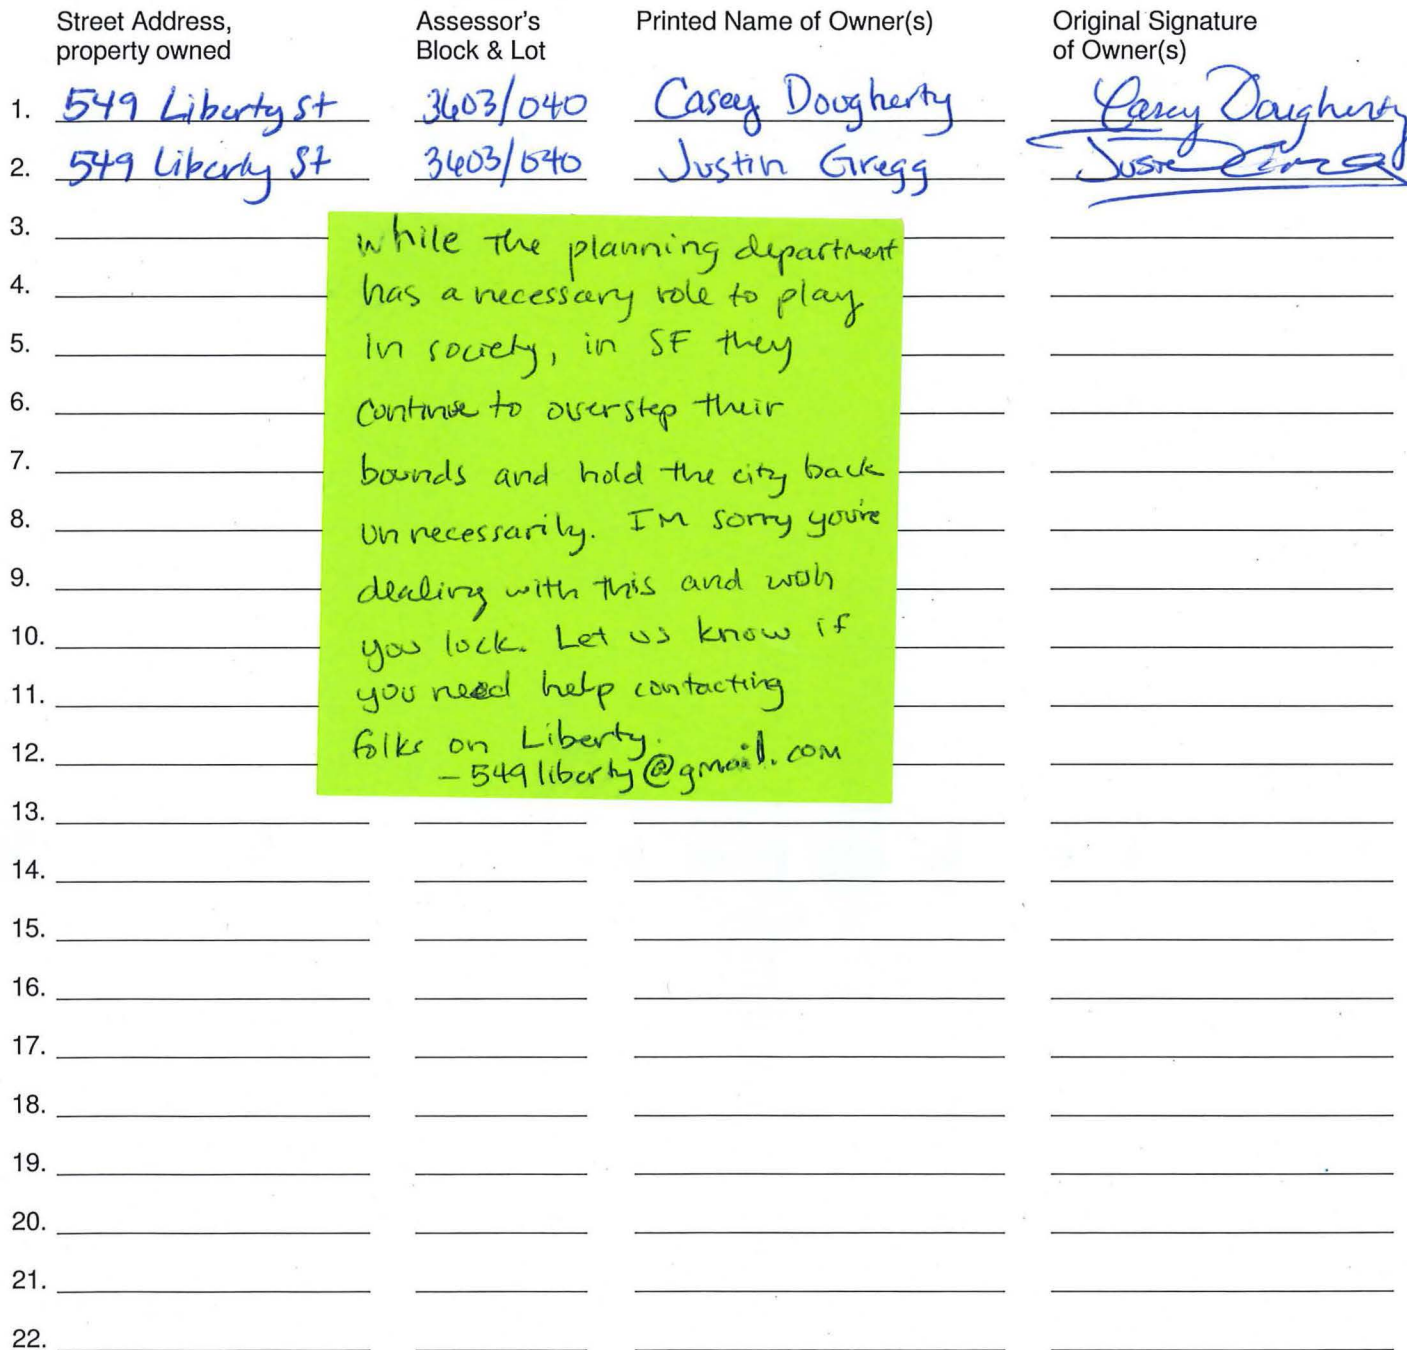 Street Address,
property owned
Assessor's
Block & Lot
Printed Name of Owner(s)
Original Signature
of Owner(s)
1. 549 Liberty St 3603/040 Casey Dougherty Casey Dougherty
2. 549 Liberty St 3603/040 Justin Gregg
3.
4.
5.
6.
7.
8.
9.
10.
11.
12.
while the planning department
has a necessary role to play
in society, in SF they
continue to overstep their
bounds and hold the city back
unnecessarily. I'm sorry you're
dealing with this and wish
you luck. Let us know if
you need help contacting
folks on Liberty.
- 549liberty@gmail.com
13.
14.
15.
16.
17.
18.
19.
20.
21.
22.